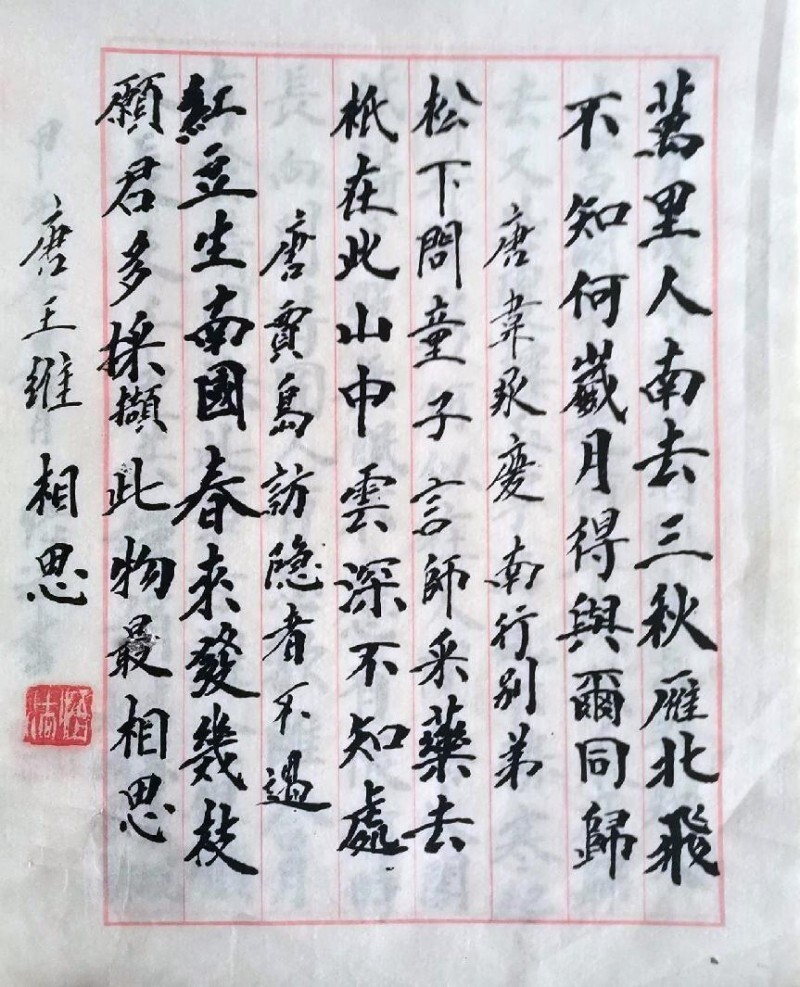 萬里人南去三秋雁北飛
不知何歲月得與爾同歸
唐韋承慶南行別弟
松下問童子言師采藥去
衹在此山中雲深不知處
唐賈島訪隐者不遇
紅豆生南國春来發幾枝
願君多採擷此物最相思
唐王維相思